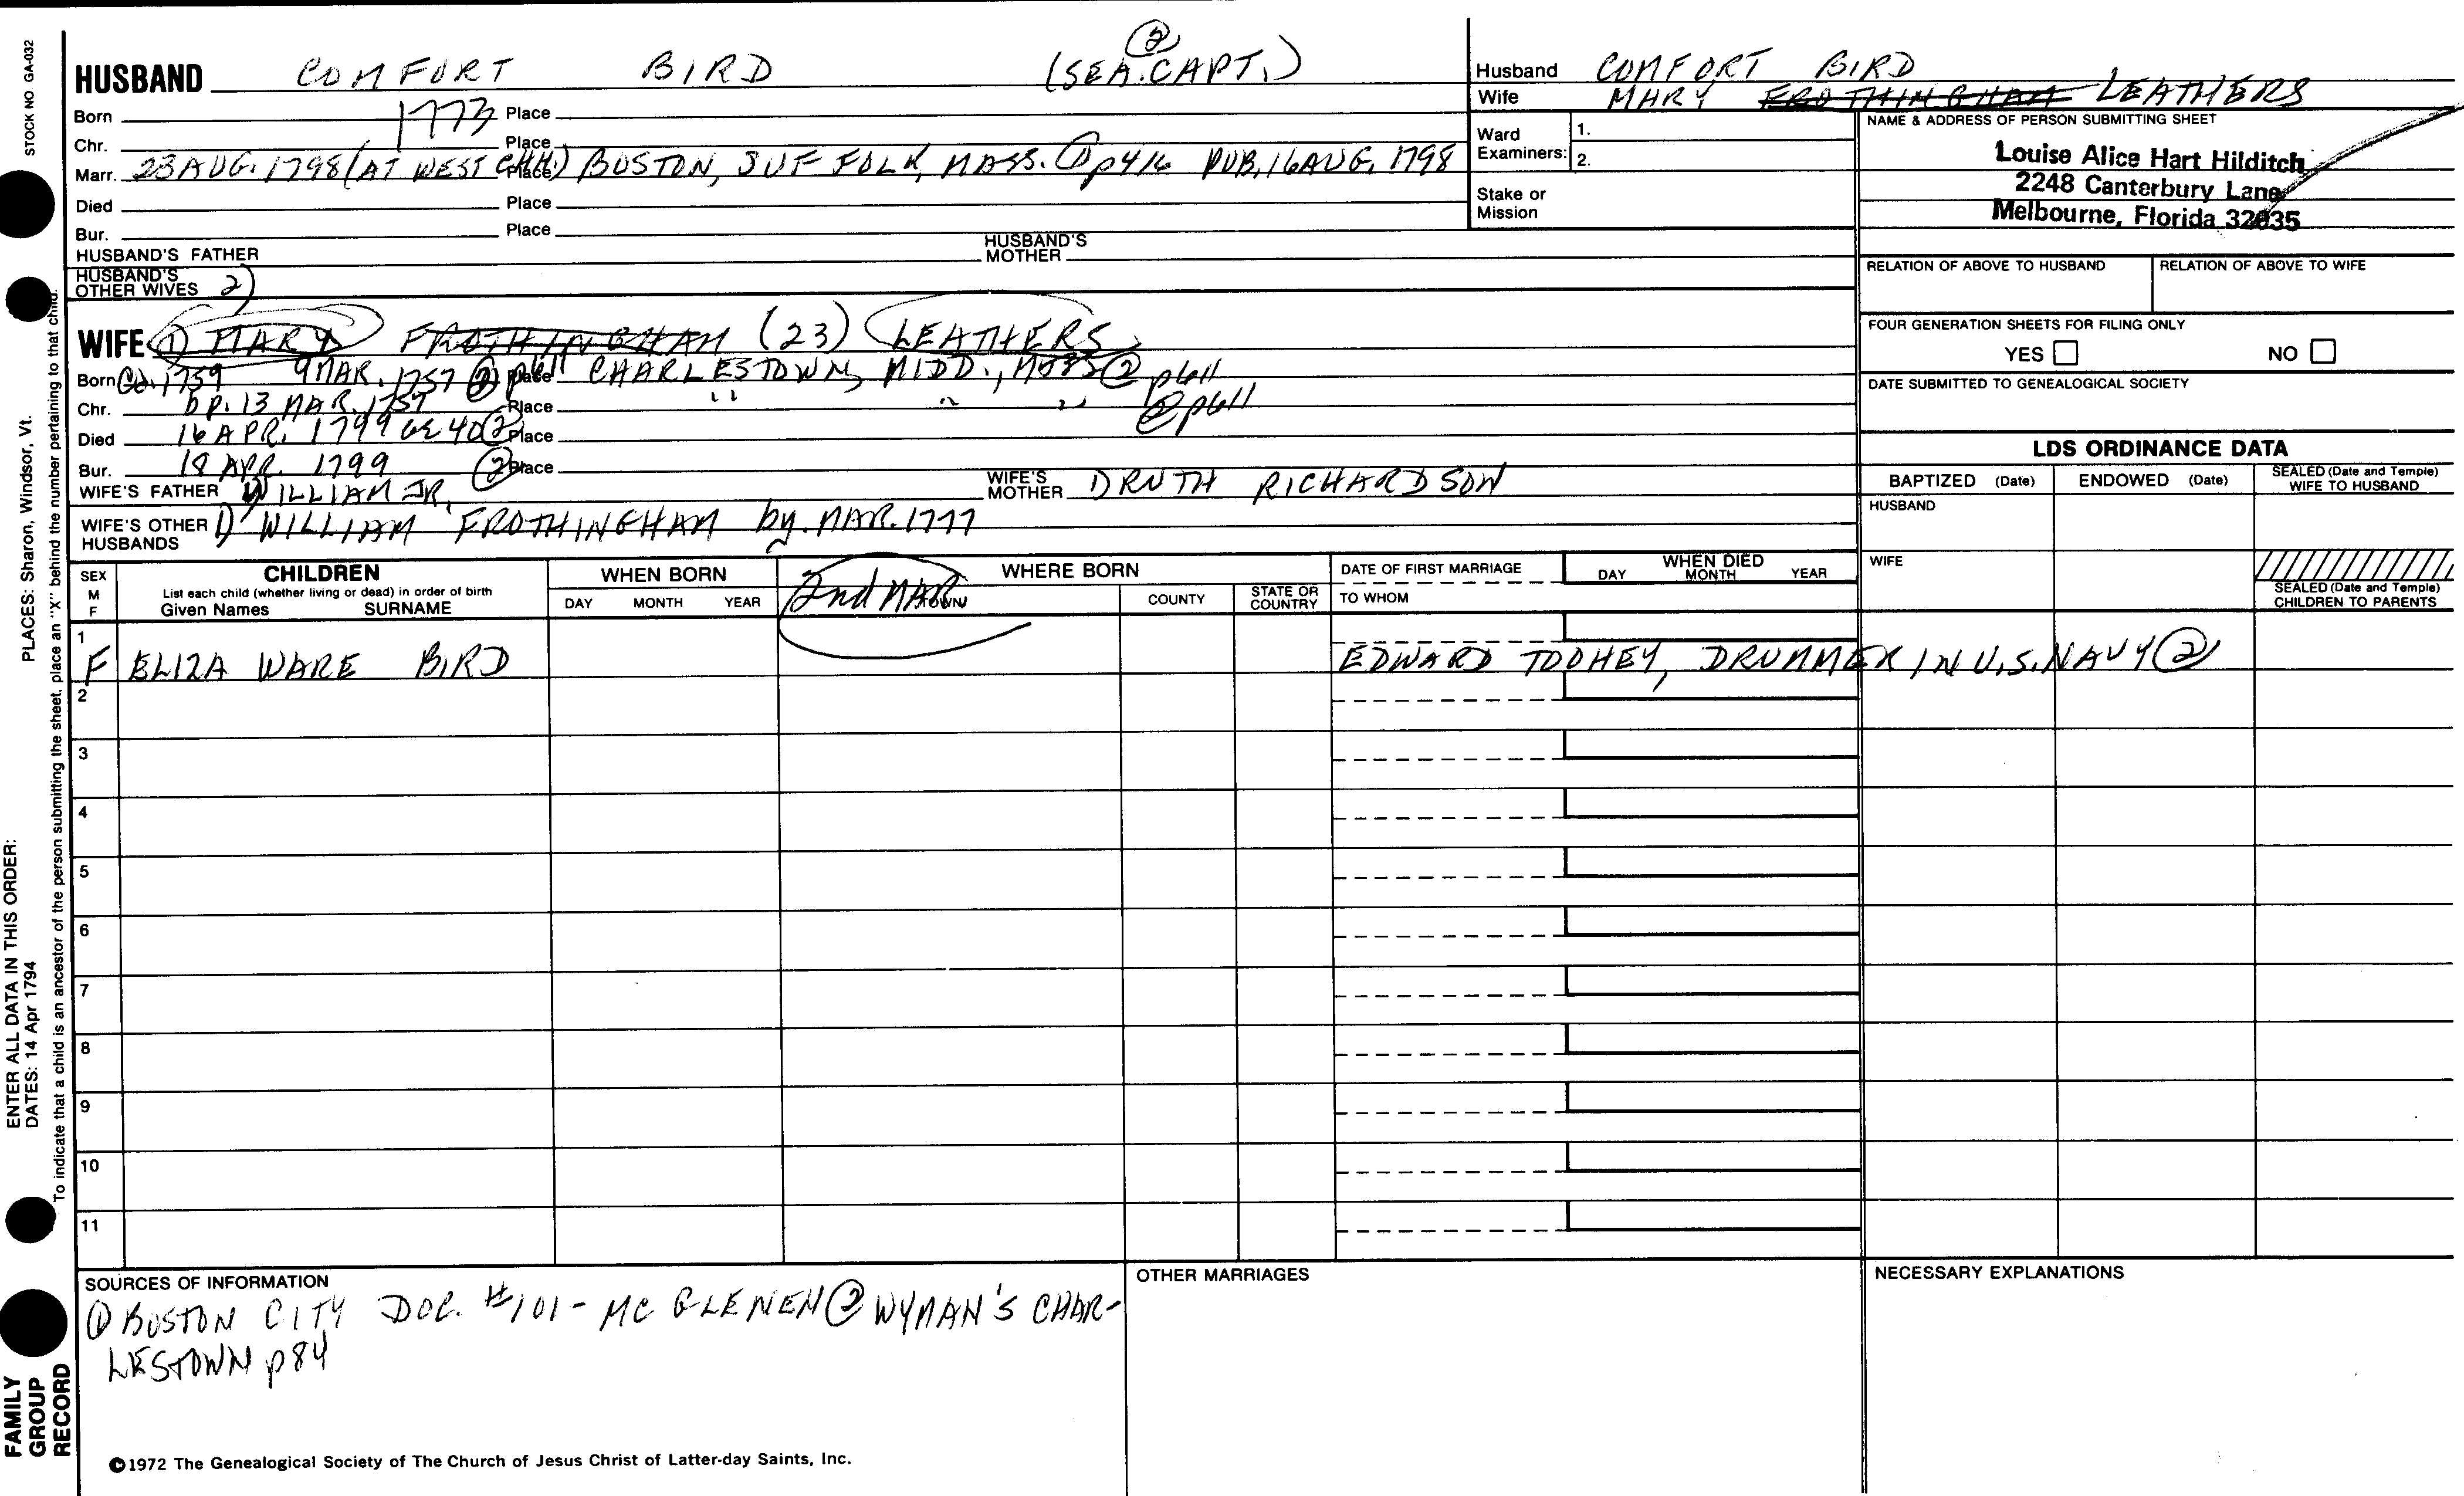 STOCK NO GA-032
PLACES: Sharon, Windsor, Vt.
ENTER ALL DATA IN THIS ORDER:
DATES: 14 Apr 1794
To indicate that a child is an ancestor of the person submitting the sheet, place an "X" behind the number pertaining to that child.
FAMILY
GROUP
RECORD
HUSBAND COMFORT BIRD (SEA.CAPT.) ②
Born 1773 Place
Chr. Place
Marr. 23 AUG. 1798 (AT WEST CHH.) Place BOSTON, SUFFOLK, MASS. ① p416 PUB. 16 AUG. 1798
Died Place
Bur. Place
HUSBAND'S FATHER HUSBAND'S MOTHER
HUSBAND'S OTHER WIVES 2)
WIFE 1) MARY FROTHINGHAM (23) LEATHERS
Born Ca. 1759 9 MAR. 1757 ② p611 Place CHARLESTOWN, MIDD., MASS ② p611
Chr. bp. 13 MAR. 1757 Place " " " ② p611
Died 16 APR. 1799 ae 40 ② Place
Bur. 18 APR. 1799 ② Place
WIFE'S FATHER WILLIAM JR. WIFE'S MOTHER DRUTH RICHARDSON
WIFE'S OTHER HUSBANDS 1) WILLIAM FROTHINGHAM by. MAR. 1777
Husband COMFORT BIRD
Wife MARY FROTHINGHAM LEATHERS
Ward Examiners: 1.
2.
Stake or Mission
NAME & ADDRESS OF PERSON SUBMITTING SHEET
Louise Alice Hart Hilditch
2248 Canterbury Lane
Melbourne, Florida 32935
RELATION OF ABOVE TO HUSBAND RELATION OF ABOVE TO WIFE
FOUR GENERATION SHEETS FOR FILING ONLY
YES NO
DATE SUBMITTED TO GENEALOGICAL SOCIETY
LDS ORDINANCE DATA
BAPTIZED (Date) ENDOWED (Date) SEALED (Date and Temple) WIFE TO HUSBAND
HUSBAND
WIFE
SEALED (Date and Temple) CHILDREN TO PARENTS
SEX M F
CHILDREN
List each child (whether living or dead) in order of birth
Given Names SURNAME
WHEN BORN
DAY MONTH YEAR
2nd MAR
WHERE BORN
TOWN COUNTY STATE OR COUNTRY
DATE OF FIRST MARRIAGE
TO WHOM
WHEN DIED
DAY MONTH YEAR
1
F ELIZA WARE BIRD EDWARD TOOHEY, DRUMMER IN U.S. NAVY ②
2
3
4
5
6
7
8
9
10
11
SOURCES OF INFORMATION
① BOSTON CITY DOC. #101 - MC GLENEN ② WYMAN'S CHAR-
LESTOWN p84
OTHER MARRIAGES
NECESSARY EXPLANATIONS
©1972 The Genealogical Society of The Church of Jesus Christ of Latter-day Saints, Inc.